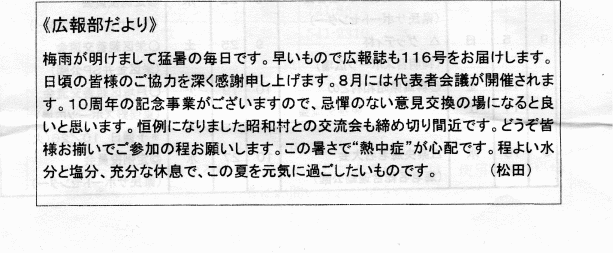 《広報部だより》
梅雨が明けまして猛暑の毎日です。早いもので広報誌も116号をお届けします。
日頃の皆様のご協力を深く感謝申し上げます。8月には代表者会議が開催されま
す。10周年の記念事業がございますので、忌憚のない意見交換の場になると良
いと思います。恒例になりました昭和村との交流会も締め切り間近です。どうぞ皆
様お揃いでご参加の程お願いします。この暑さで“熱中症”が心配です。程よい水
分と塩分、充分な休息で、この夏を元気に過ごしたいものです。　　　（松田）